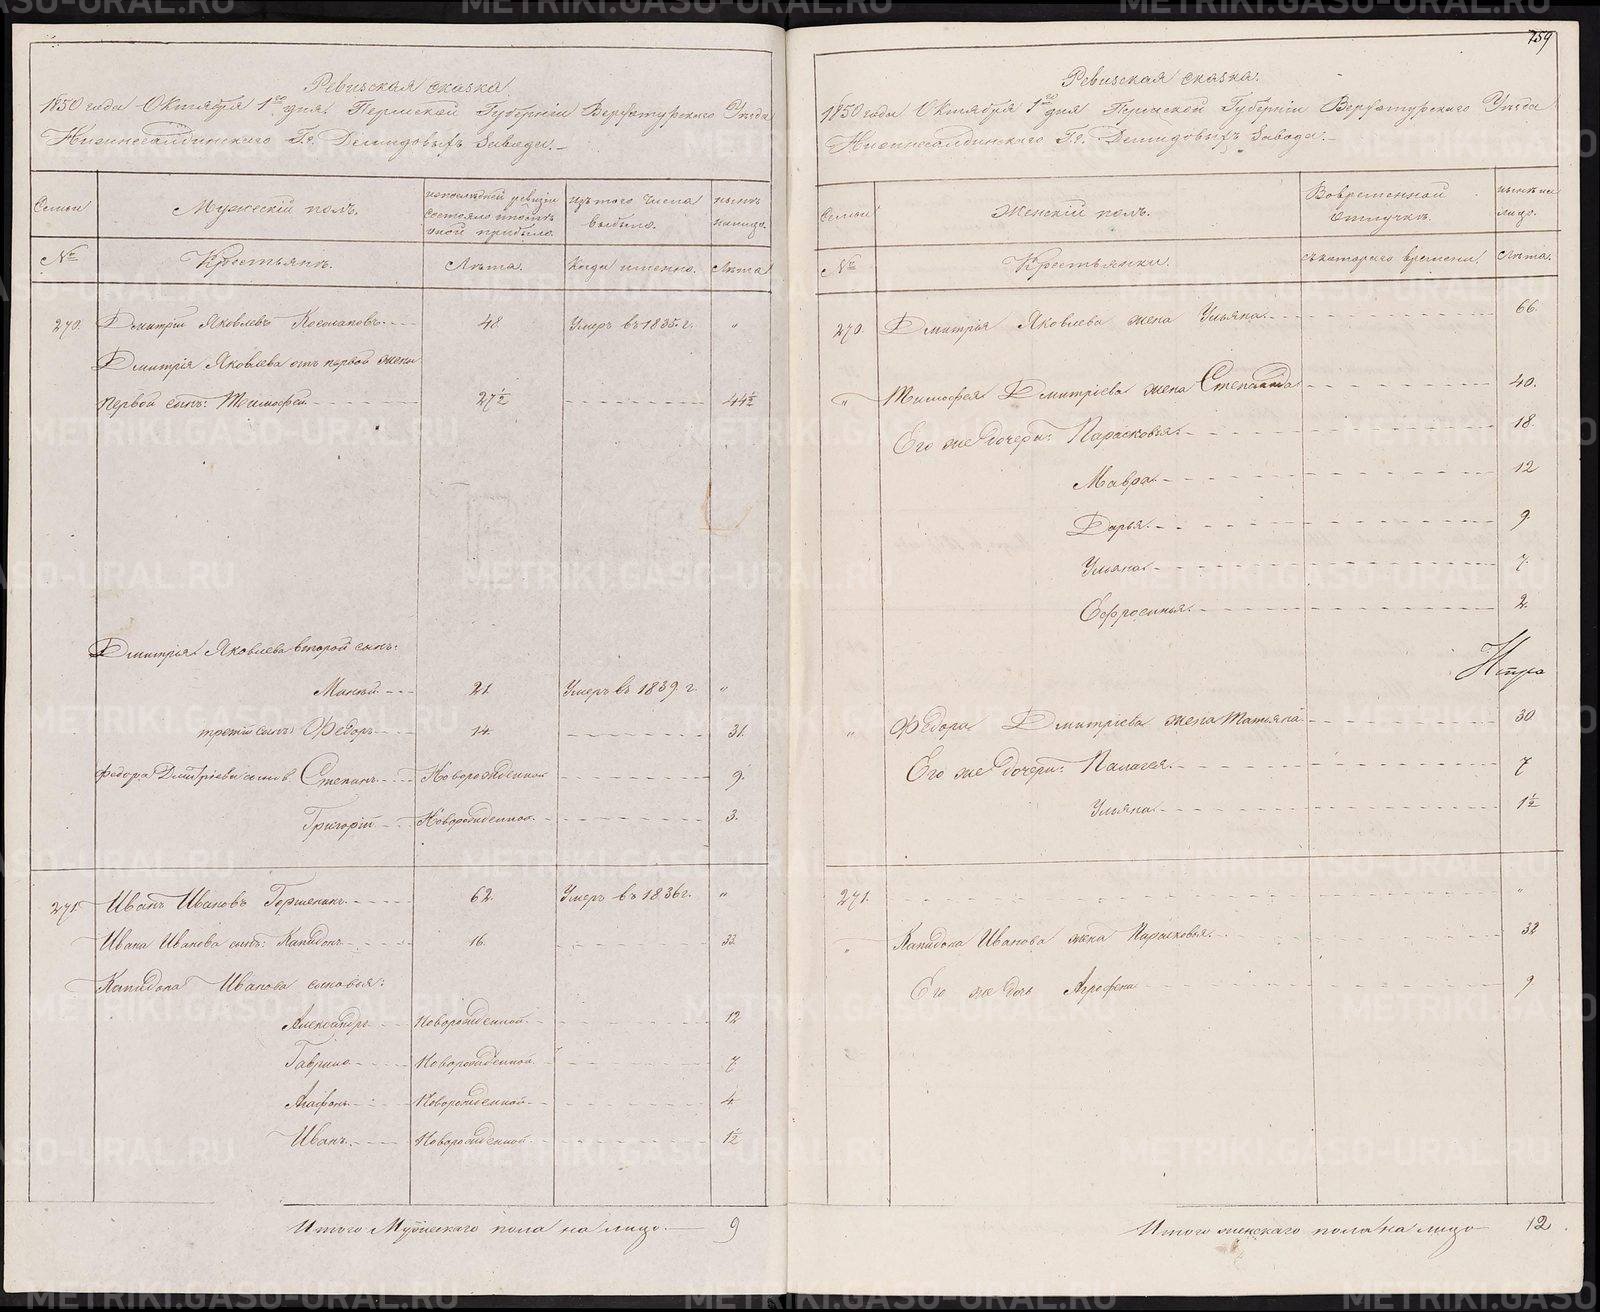 Ревизская сказка.
1850 года Октября 1го дня. Пермской Губернiи Верхотурскаго Уезда
Нижнесалдинскаго Гг. Демидовыхъ Завода.
Семьи
Мужескiй полъ.
изъ того числа выбыло.
ныне на лицо.
№
Крестьяне.
Лета.
Когда именно.
Лета
270. Дмитрiй Яковлевъ 48. Умеръ въ 1835 г. "
Дмитрiя Яковлева отъ первой жены
первой сынъ: Тимофей 27½ 44½
Дмитрiя Яковлева второй сынъ:
21. Умеръ въ 1839 г. "
третiй сынъ Федоръ 14. 31.
Федора Дмитрiева сынов. Степанъ Новорожденной 9.
Григорiй Новорожденной 3.
271. Иванъ Ивановъ 62. Умеръ въ 1836 г. "
Ивана Иванова сынъ: Капидонъ 16. 32
Капидона Иванова сыновья:
Александръ Новорожденной 12
Гаврило Новорожденной 7
Агафонъ Новорожденной 4
Иванъ Новорожденной 1½
Итого Мужескаго пола на лицо 9
759
Ревизская сказка.
1850 года Октября 1го дня Пермской Губернiи Верхотурскаго Уезда
Нижнесалдинскаго Гг. Демидовыхъ Завода.
Семьи
Женскiй полъ.
Вовременной отлучке.
ныне на лицо.
№
Крестьянки.
съ котораго времени
Лета.
270. Дмитрiя Яковлева жена Ульяна 66.
" Тимофея Дмитрiева жена Степанида 40.
Его же дочери: Парасковья. 18.
Мавра. 12
Дарья. 9.
Ульяна. 7.
Ефросинья. 2.
" Федора Дмитрiева жена Татьяна 30
Его же дочери: Палагея. 7
Ульяна 1½
271. "
" Капидона Иванова жена Парасковья. 32
Его же дочь Агрофена 9
Итого женскаго пола на лицо 12.
METRIKI.GASO-URAL.RU